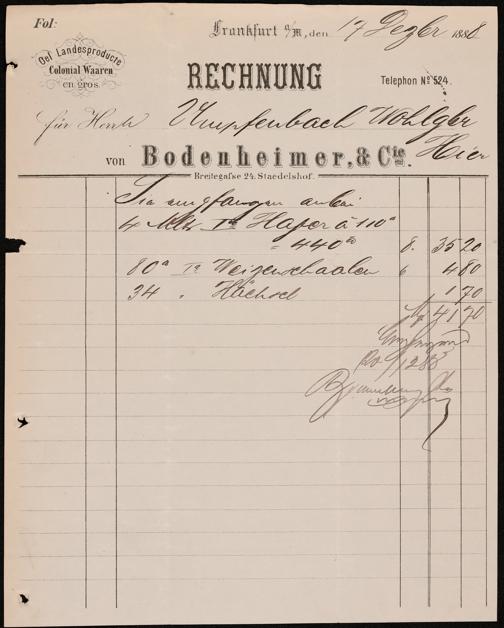 Fol:
Frankfurt a/M, den 17 Dezbr 1888
Oel Landesproducte
Colonial Waaren
en gros.
RECHNUNG
Telephon No 524.
für Herrn Umpfenbach Wohlgbr
Hier
von Bodenheimer, & Cie.
Breitegasse 24. Staedelshof.
Sie empfangen anbei
4 Mltr Ia Hafer à 110
= 440 8. 35 20
80 Ia Weizenschaalen 6 4 80
34 " Häcksel 1 70
41 70